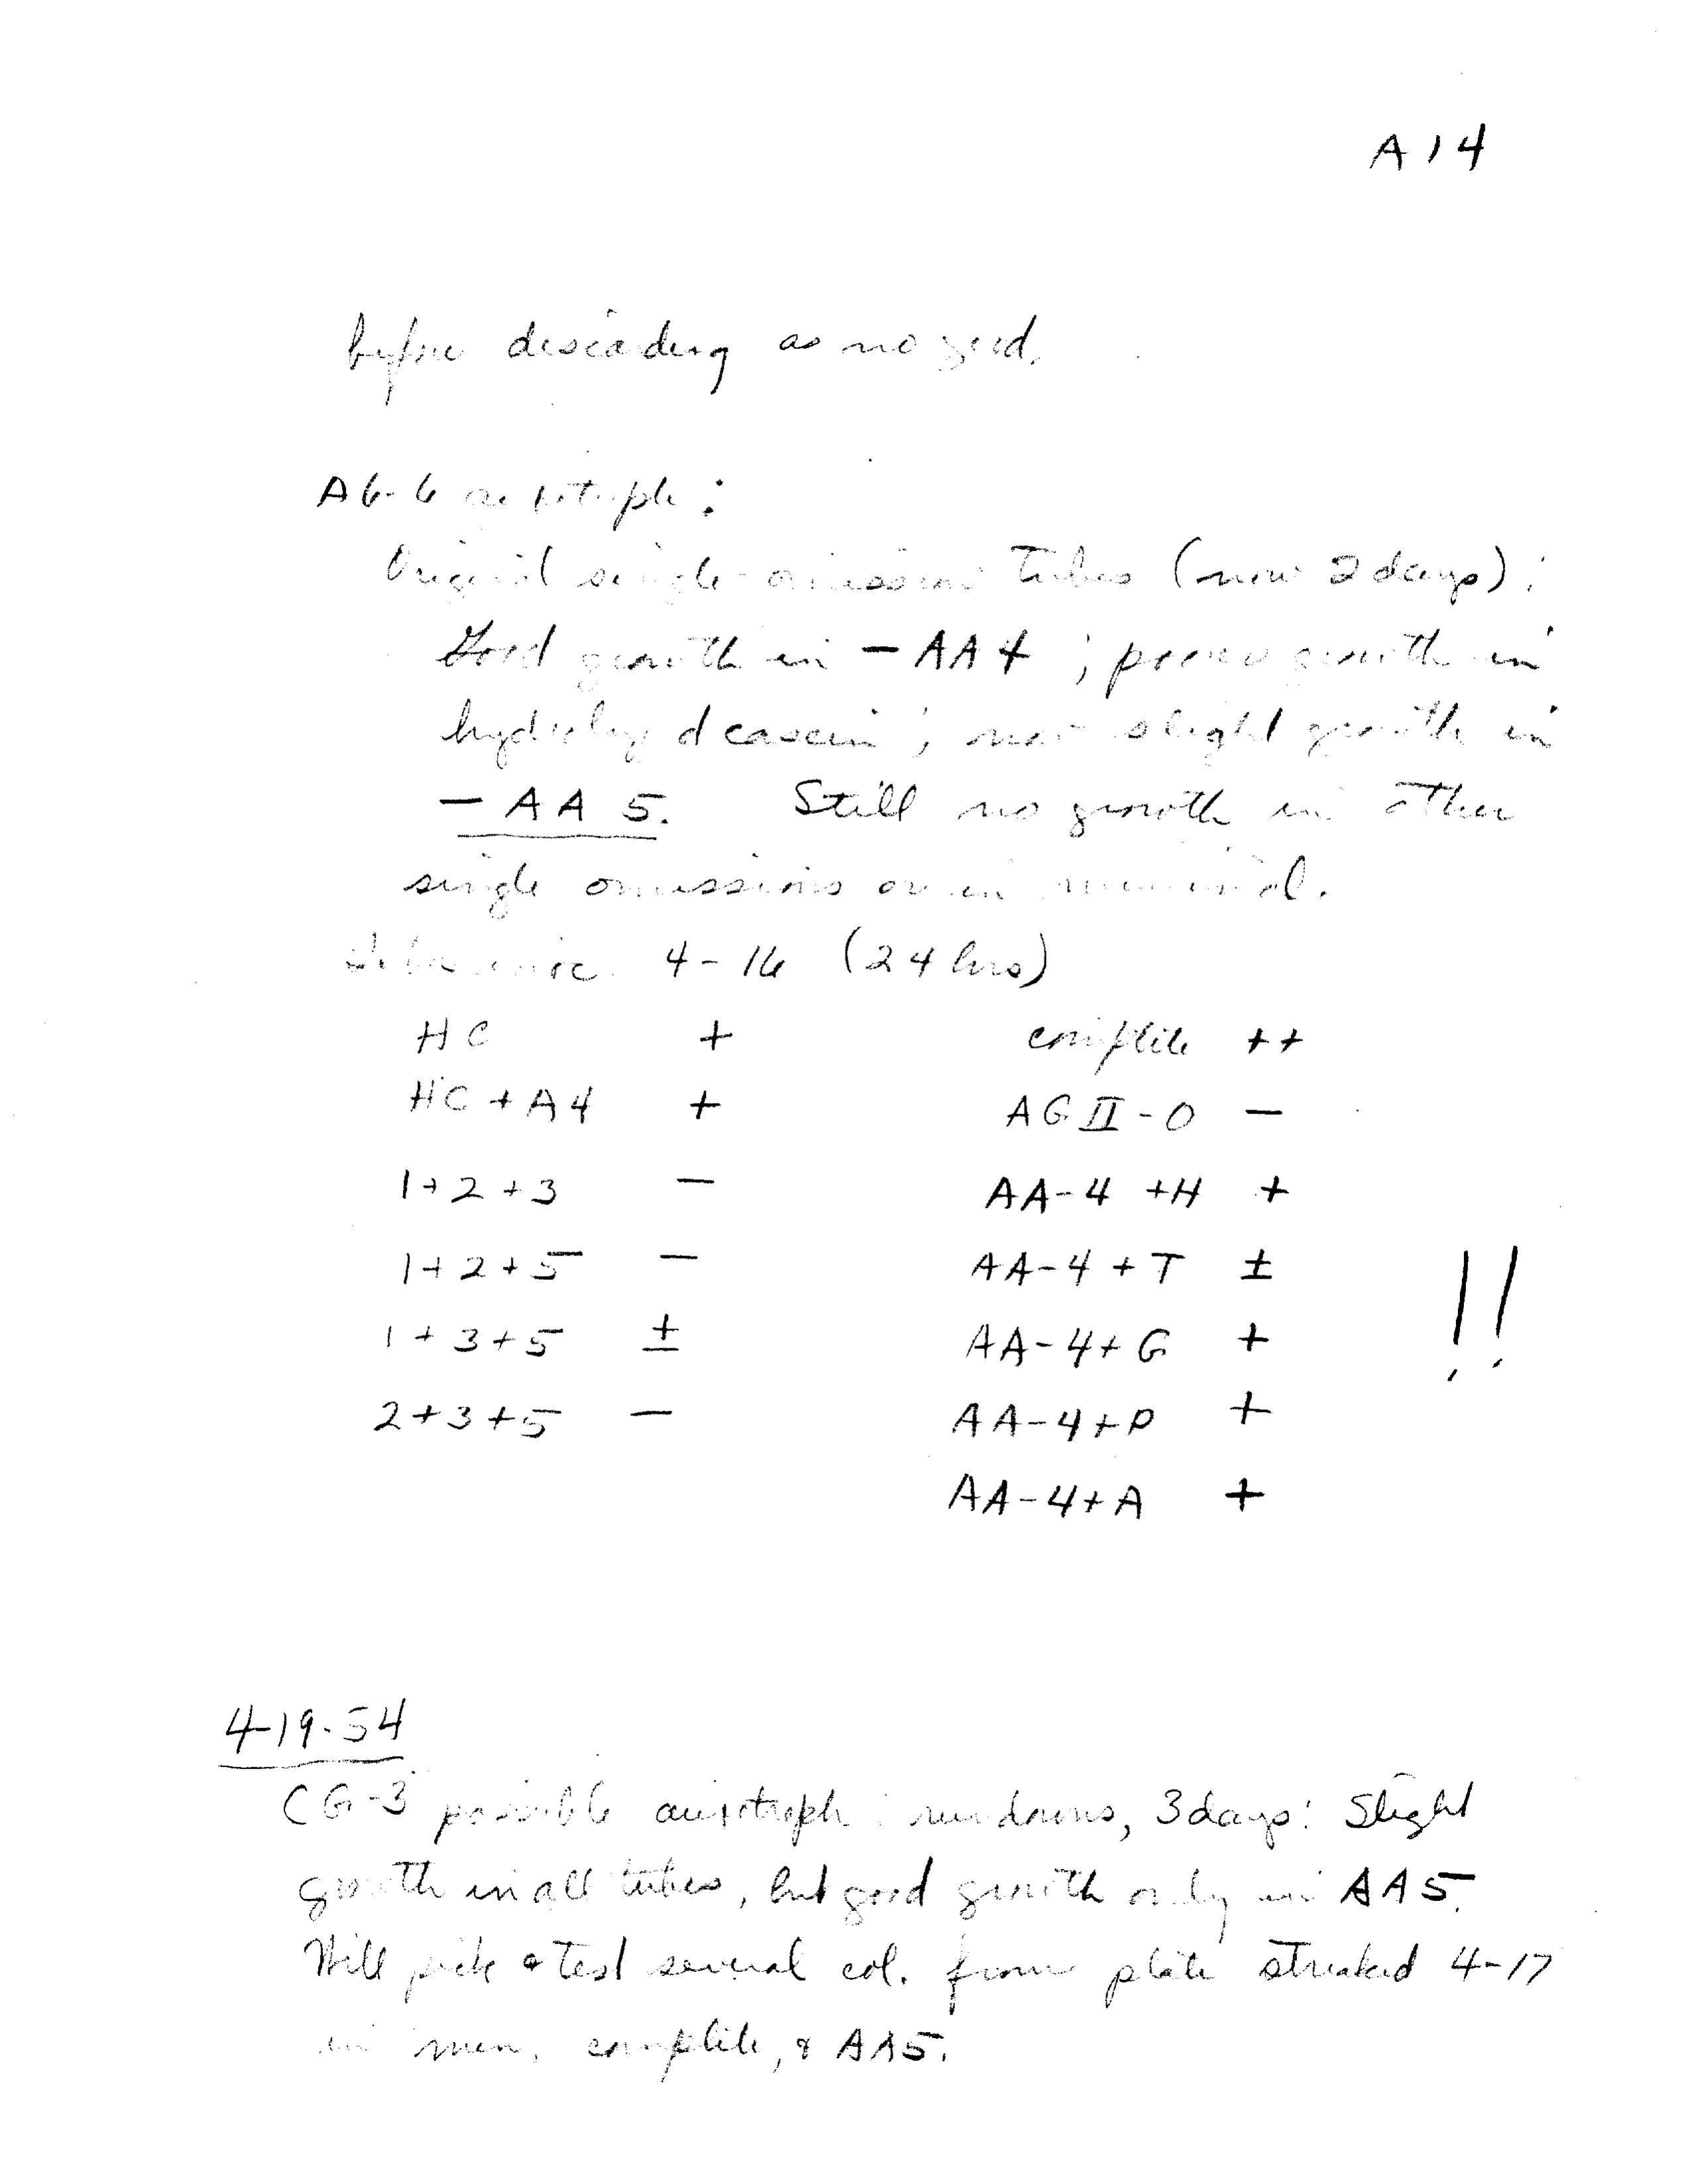 A14
before discarding as no good.
A6-6 auxotroph:
Original single omission tubes (now 2 days):
Good growth in -AA4; poorer growth in
hydrolyzed casein; now slight growth in
-AA5. Still no growth in other
single omissions or in minimal.
4-16 (24 hrs)
HC + complete ++
HC + A4 + AG II-O -
1+2+3 - AA-4 +H +
1+2+5 - AA-4 + T ± !!
1+3+5 ± AA-4+ G +
2+3+5 - AA-4+P +
AA-4+A +
4-19-54
CG-3 possible auxotroph: rundowns, 3 days: Slight
growth in all tubes, but good growth only in AA5.
Will pick & test several col. from plate streaked 4-17
in min, complete, & AA5.